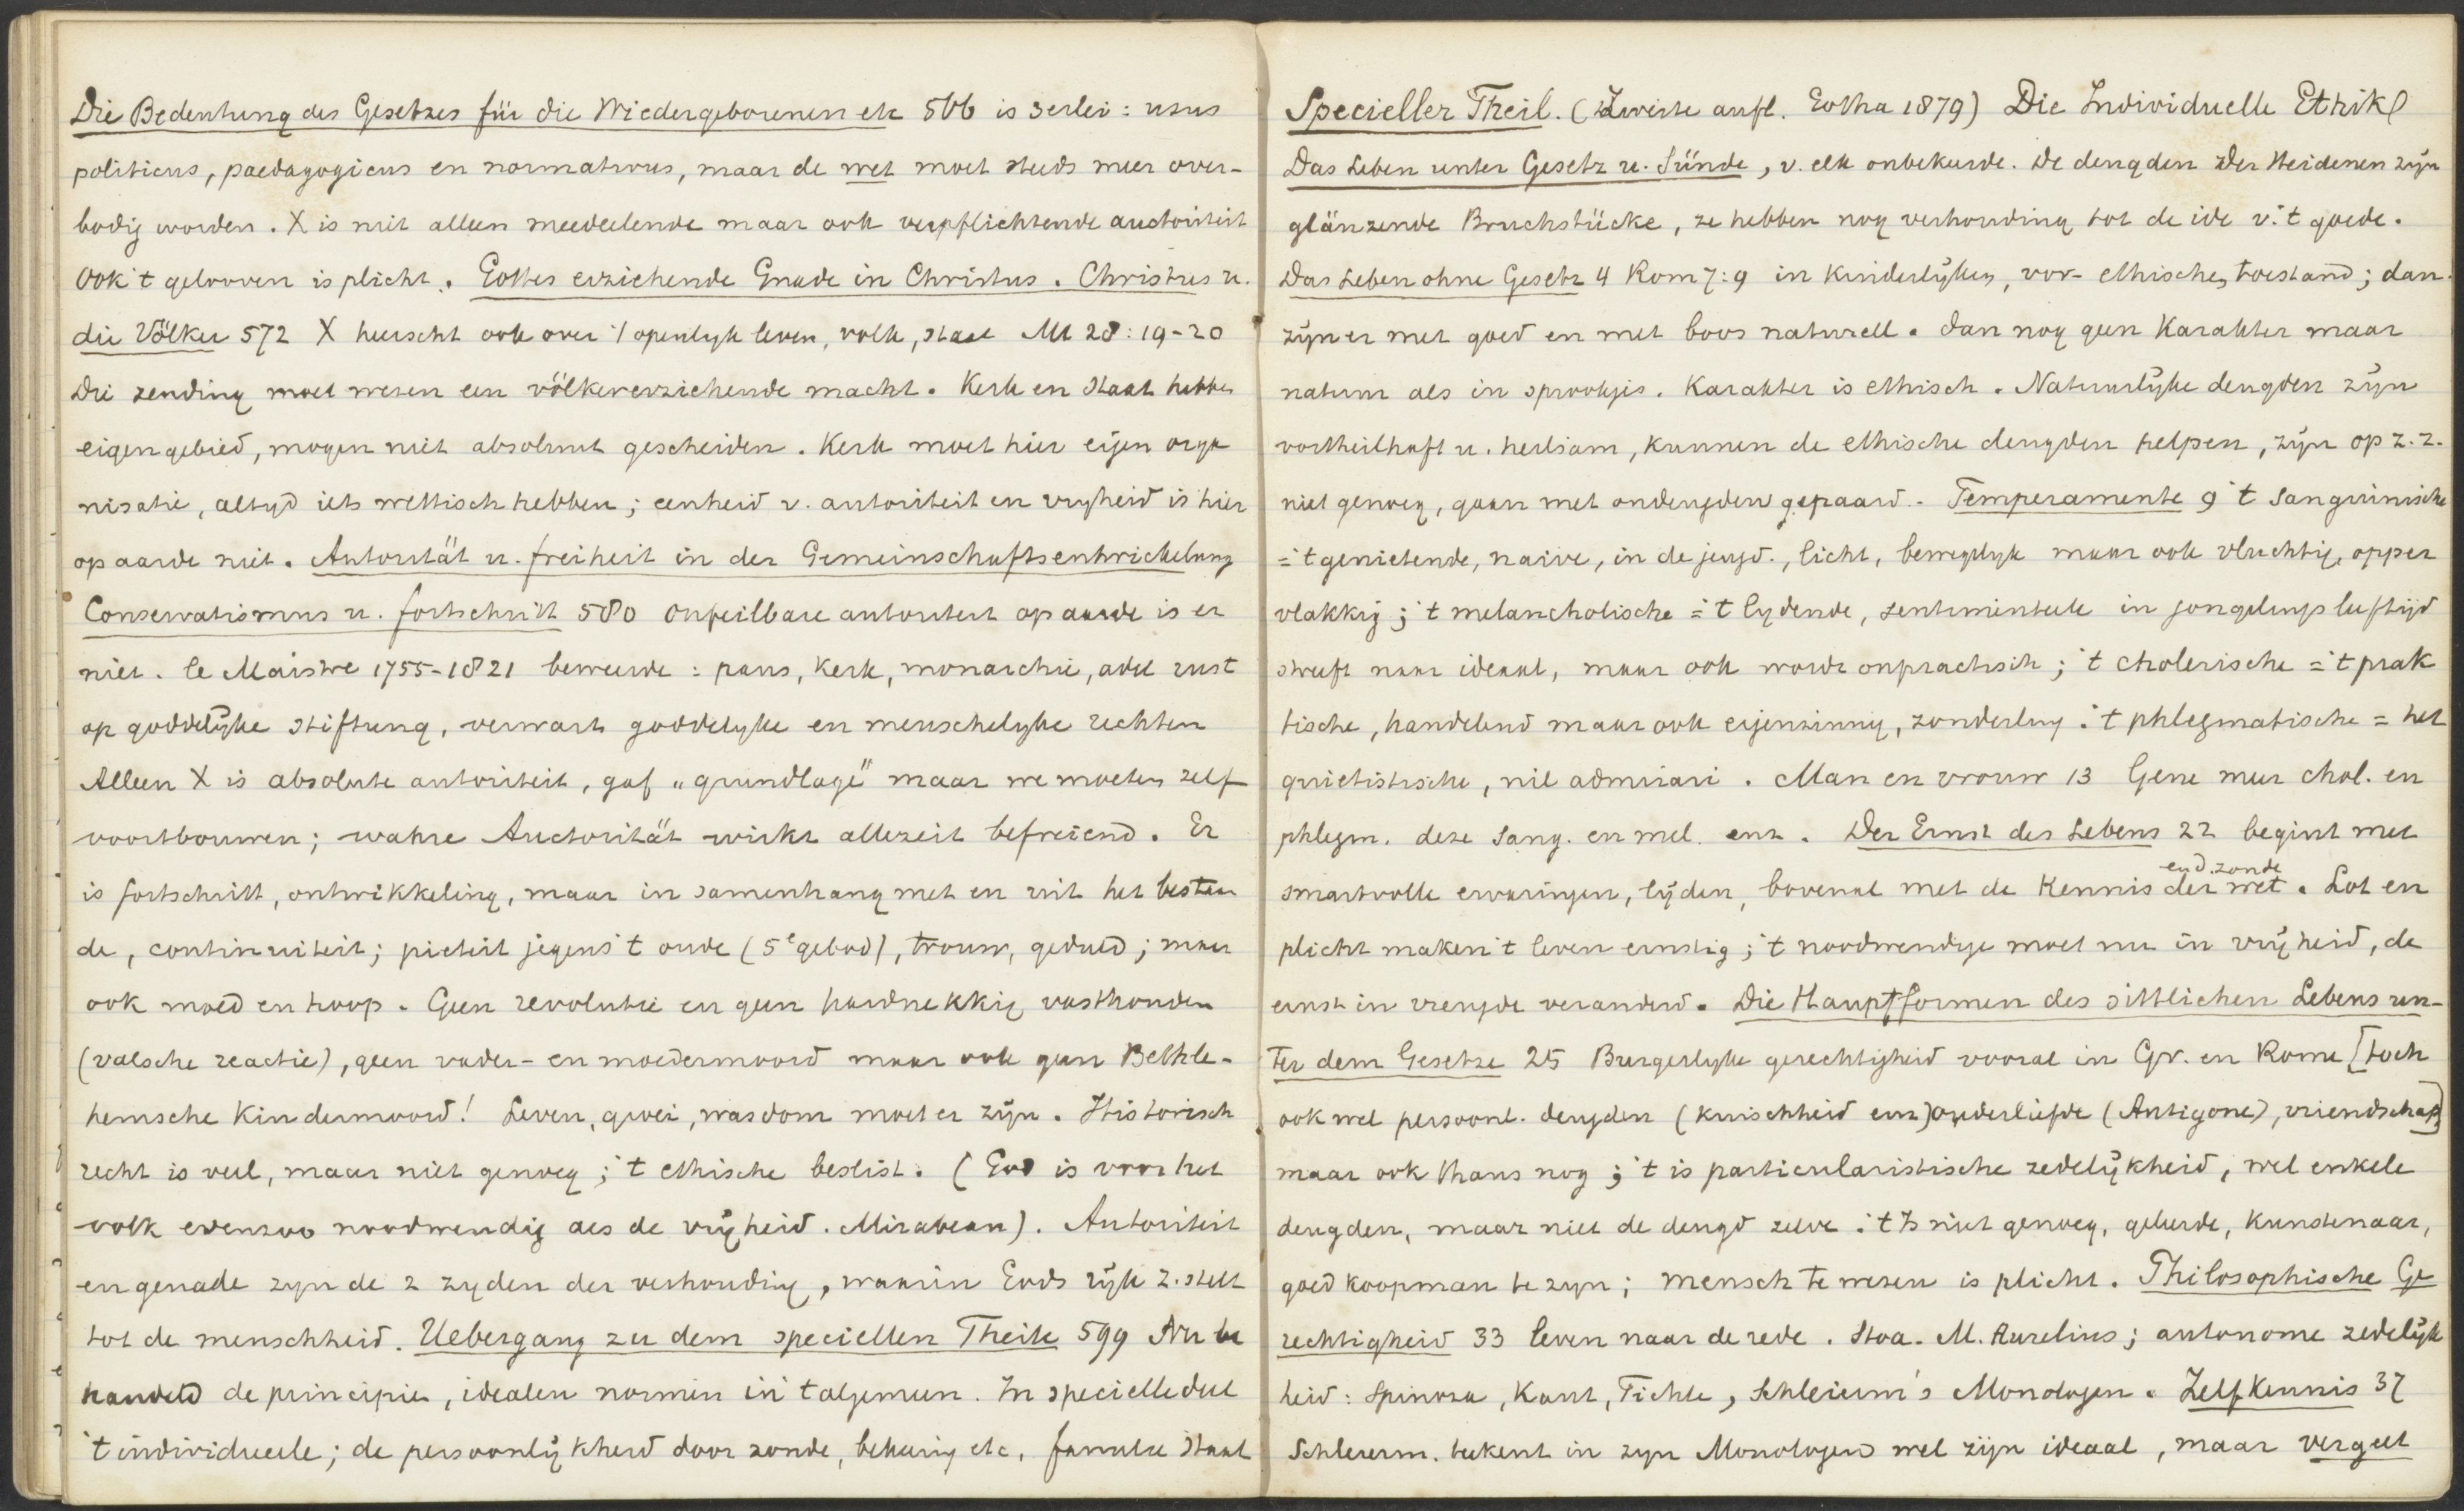 Die Bedeutung des Gesetzes für die Wiedergeborenen etc 566 is 3erlei: usus
politicus, paedagogicus en normativus, maar de wet moet steeds meer over-
bodig worden. X is niet alleen meedeelende maar ook verpflichtende auctoriteit
Ook 't gelooven is plicht. Gottes erziehende Gnade in Christus. Christus u.
die Völker 572 X heerscht ook over 't openlyk leven, volk, staat Mt 28:19-20
Die zending moet wezen een völkererziehende macht. Kerk en Staat hebben
eigen gebied, mogen niet absoluut gescheiden. Kerk moet hier eigen orga
nisatie, altyd iets wettisch hebben; eenheid v. autoriteit en vryheid is hier
op aarde niet. Autorität u. freiheit in der Gemeinschaftsentwickelung
Conservatismus u. fortschritt 580 Onfeilbare autoriteit op aarde is er
niet. le Maistre 1755-1821 beweerde: paus, kerk, monarchie, adel rust
op goddelyke stiftung, verwart goddelyke en menschelyke rechten
Alleen X is absolute autoriteit, gaf "grundlage" maar we moeten zelf
voortbouwen; wahre Auctorität wirkt allezeit befreiend. Er
is fortschritt, ontwikkeling, maar in samenhang met en uit het bestaan
de, continuiteit; pieteit jegens 't oude (5e gebod), trouw, geduld; maar
ook moed en hoop. Geen revolutie en geen hardnekkig vasthouden
(valsche reactie), geen vader- en moedermoord maar ook geen Bethle-
hemsche Kindermoord! Leven, groei, wasdom moet er zijn. Historisch
recht is veel, maar niet genoeg; 't ethische beslist. (God is voor het
volk evenzoo noodwendig als de vrijheid. Mirabeau). Autoriteit
en genade zyn de 2 zyden der verhouding, waarin Gods rijk z. stelt
tot de menschheid. Uebergang zu dem speciellen Theile 599 Nu be
handeld de principia, idealen normen in 't algemeen. In specielle deel
't individueele; de persoonlijkheid door zonde, bekeering etc. familie staat
Specieller Theil. (Zweite aufl. Gotha 1879) Die Individuelle Ethik
Das Leben unter Gesetz u. Sünde, v. elk onbekeerde. De deugden der Heidenen zijn
glänzende Bruchstücke, ze hebben nog verhouding tot de ide v. 't goede.
Das Leben ohne Gesetz 4 Rom 7:9 in kinderlyken, vor-ethischen toestand; dan
zijn er met goed en met boos naturell. Dan nog geen Karakter maar
natuur als in sprookjes. Karakter is ethisch. Natuurlijke deugden zijn
vortheilhaft u. heilsam, kunnen de ethische deugden helpen, zijn op z. z.
niet genoeg, gaan met ondeugden gepaard. - Temperamente 9 't Sanguinische
= 't genietende, naive, in de jeugd., licht, beweeglyk maar ook vluchtig, opper
vlakkig; 't melancholische = 't lydende, sentimenteele in jongelingsleeftijd
streeft naar ideaal, maar ook wordt onpractisch; 't cholerische = 't prak
tische, handelend maar ook eigenzinnig, zonderling. 't phlegmatische = het
quietistische, nil admirari. Man en vrouw 13 Gene meer chol. en
phlegm. deze Sang. en mel. enz. Der Ernst des Lebens 22 begint met
smartvolle ervaringen, lijden, bovenal met de kennis der wet en d. zonde. Lot en
plicht maken 't leven ernstig; 't noodwendige moet nu in vrijheid, de
ernst in vreugde veranderd. Die Hauptformen des sittlichen Lebens un-
ter dem Gesetze 25 Burgerlyke gerechtigheid vooral in Gr. en Rome [toch
ook wel persoonl. deugden (kuischheid enz) ouderliefde (Antigone), vriendschap]
maar ook thans nog; 't is particularistische zedelijkheid, wel enkele
deugden, maar niet de deugd zelve. 't Is niet genoeg, geleerde, kunstenaar,
goed koopman te zyn; mensch te wezen is plicht. Philosophische Ge
rechtigheid 33 leven naar de rede. Stoa. M. Aurelius; autonome zedelijk
heid: Spinoza, Kant, Fichte, Schleierm's Monologen. Zelfkennis 37
Schleierm. bekent in zyn Monologen wel zijn ideaal, maar vergeet